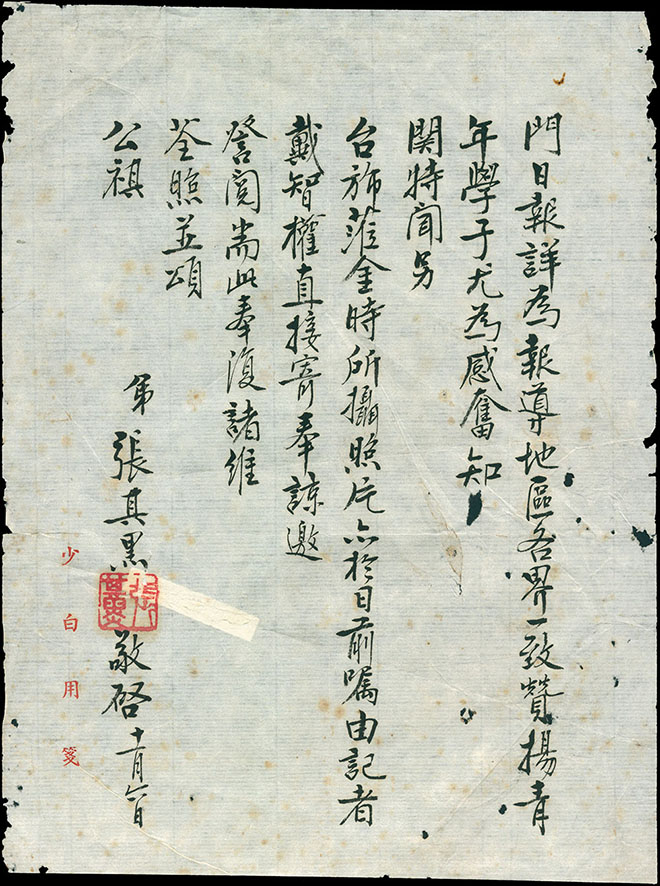 門日報詳為報導地區各界一致贊揚青
年學子尤為感奮知
関特聞另
台斾蒞金時所攝照片亦於日前囑由記者
戴智權直接寄奉諒邀
詧閱耑此奉復諸維
荃照並頌
公祺
弟張其黑敬啓十一月六日
少白用箋